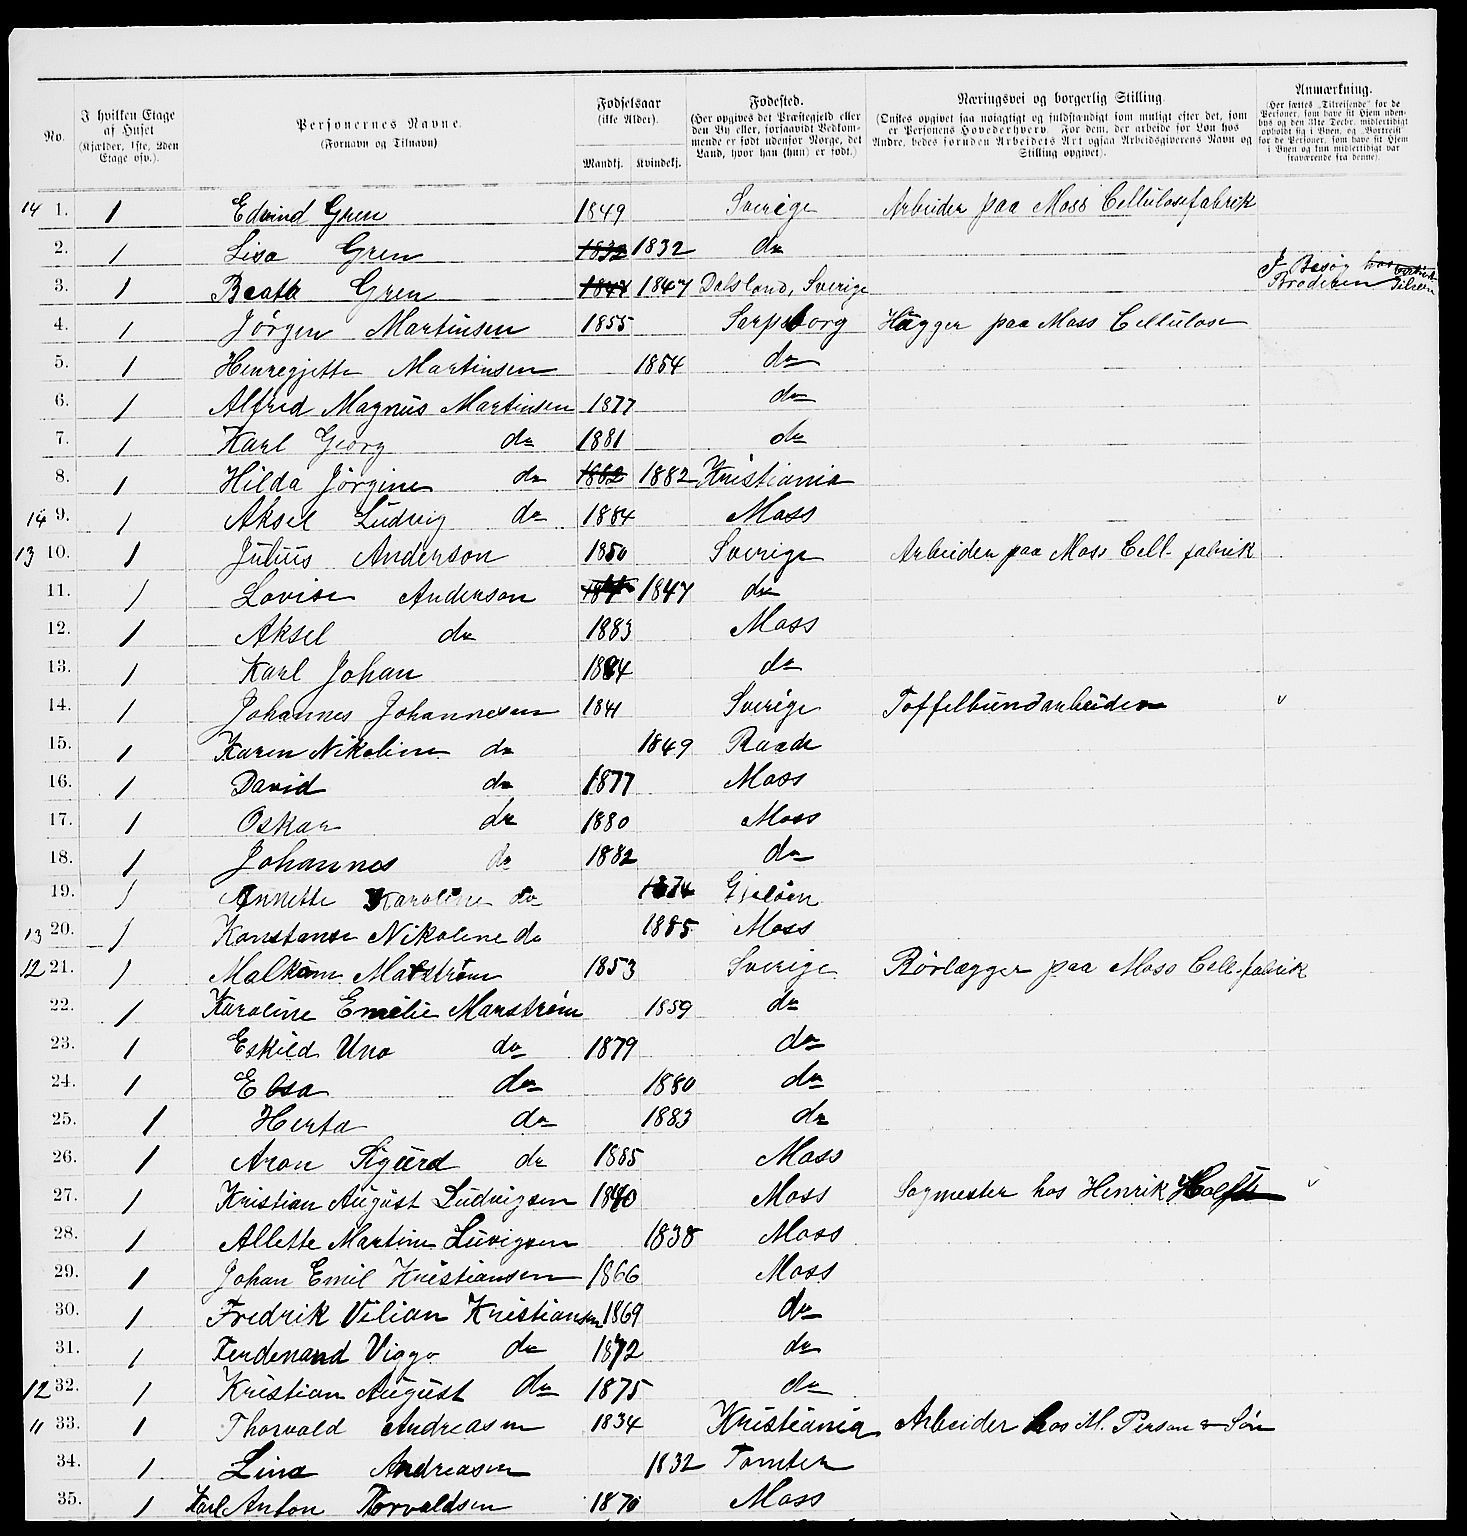 No.
I hvilken Etage af Huset (Kjælder, 1ste, 2den Etage osv.).
Personernes Navne. (Fornavn og Tilnavn)
Fødselsaar (ikke Alder). Mandkj. Kvindekj.
Fødested. (Her opgives det Præstegjeld eller den By eller, forsaavidt Vedkommende er født udenfor Norge, det Land, hvor han (hun) er født.)
Næringsvei og borgerlig Stilling (Ønskes opgivet saa nøiagtigt og fuldstændigt som muligt efter det, som er Personens Hovederhverv. For dem, der arbeide for Løn hos Andre, bedes foruden Arbeidets Art ogsaa Arbeidsgiverens Navn og Stilling opgivet).
Anmærkning. (Her sættes „Tilreisende" for de Personer, som have sit Hjem udenbys og den 31te Decbr. midlertidigt opholdt sig i Byen, og „Bortreist" for de Personer, som have sit Hjem i Byen og kun midlertidigt var fraværende fra denne).
14 1. 1 Edvind Gren 1849 Sverige Arbeider paa Moss Cellulosefabrik
2. 1 Lisa Gren 1832 1832 do
3. 1 Beata Gren 1847 1847 Dalsland, Sverige I Besøg hos Broderen
4. 1 Jørgen Martinsen 1855 Sarpsborg Hugger paa Moss Cellulose
5. 1 Henregjette Martinsen 1854 do
6. 1 Alfred Magnus Martinsen 1877 do
7. 1 Karl Georg do 1881 do
8. 1 Hilda Jørgine do 1882 1882 Kristiania
14 9. 1 Aksel Ludvig do 1884 Moss
13 10. 1 Julius Anderson 1850 Sverige Arbeider paa Moss Cell. fabrik
11. 1 Lovise Anderson 1847 do
12. 1 Aksel do 1883 Moss
13. 1 Karl Johan 1884 do
14. 1 Johannes Johannesen 1841 Sverige Toffelbundarbeider
15. 1 Karen Nikoline do 1849 Raade
16. 1 David do 1877 Moss
17. 1 Oskar do 1880 Moss
18. 1 Johannes do 1882 do
19. 1 Annette Karoline do 1874
13 20. 1 Konstanse Nikoline do 1885 Moss
12 21. 1 Malkom Marstrøm 1853 Sverige Rørlægger paa Moss Cell. fabrik
22. 1 Karoline Emelie Marstrøm 1859 do
23. 1 Eskild Uno do 1879 do
24. 1 Elsa do 1880 do
25. 1 Herta do 1883 do
26. 1 Aron Sigurd do 1885 Moss
27. 1 Kristian August Ludvigsen 1840 Moss Sagmester hos Henrik
28. 1 Allette Martine Luvigsen 1838 Moss
29. 1 Johan Emil Kristiansen 1866 Moss
30. 1 Fredrik Vilian Kristiansen 1869 do
31. 1 Ferdenand Viggo do 1872 do
12 32. 1 Kristian August do 1875 do
11 33. 1 Thorvald Andreasen 1834 Kristiania Arbeider hos M. Person & Søn
34. 1 Lina Andreasen 1832 Tomter
35. 1 Karl Anton Torvaldsen 1870 Moss